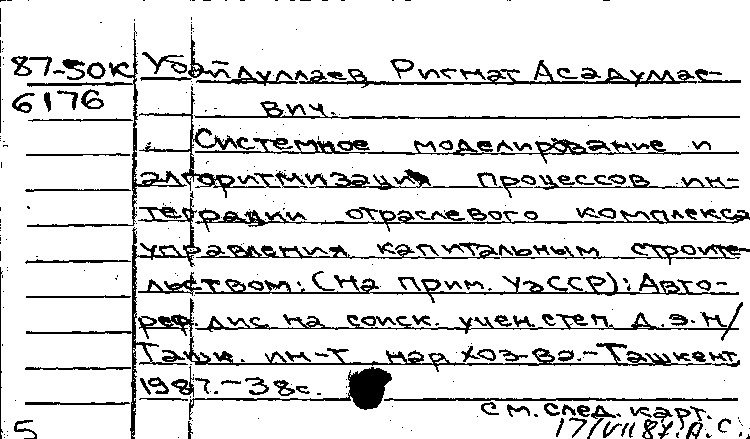 87-50К Убайдуллаев, Ригмат Асадуллае-
6176 вич.
Системное моделирование и
алгоритмизация процессов ин-
теграции отраслевого комплекса
управления капитальным строите-
льством: (На прим. УзССР): Авто-
реф. дис. на соиск. учен. степ. д.э.н/
Ташк. ин-т нар хоз-ва.-Ташкент,
1987.-38с.
см. след. карт.
5 17/VII 87. А.С.